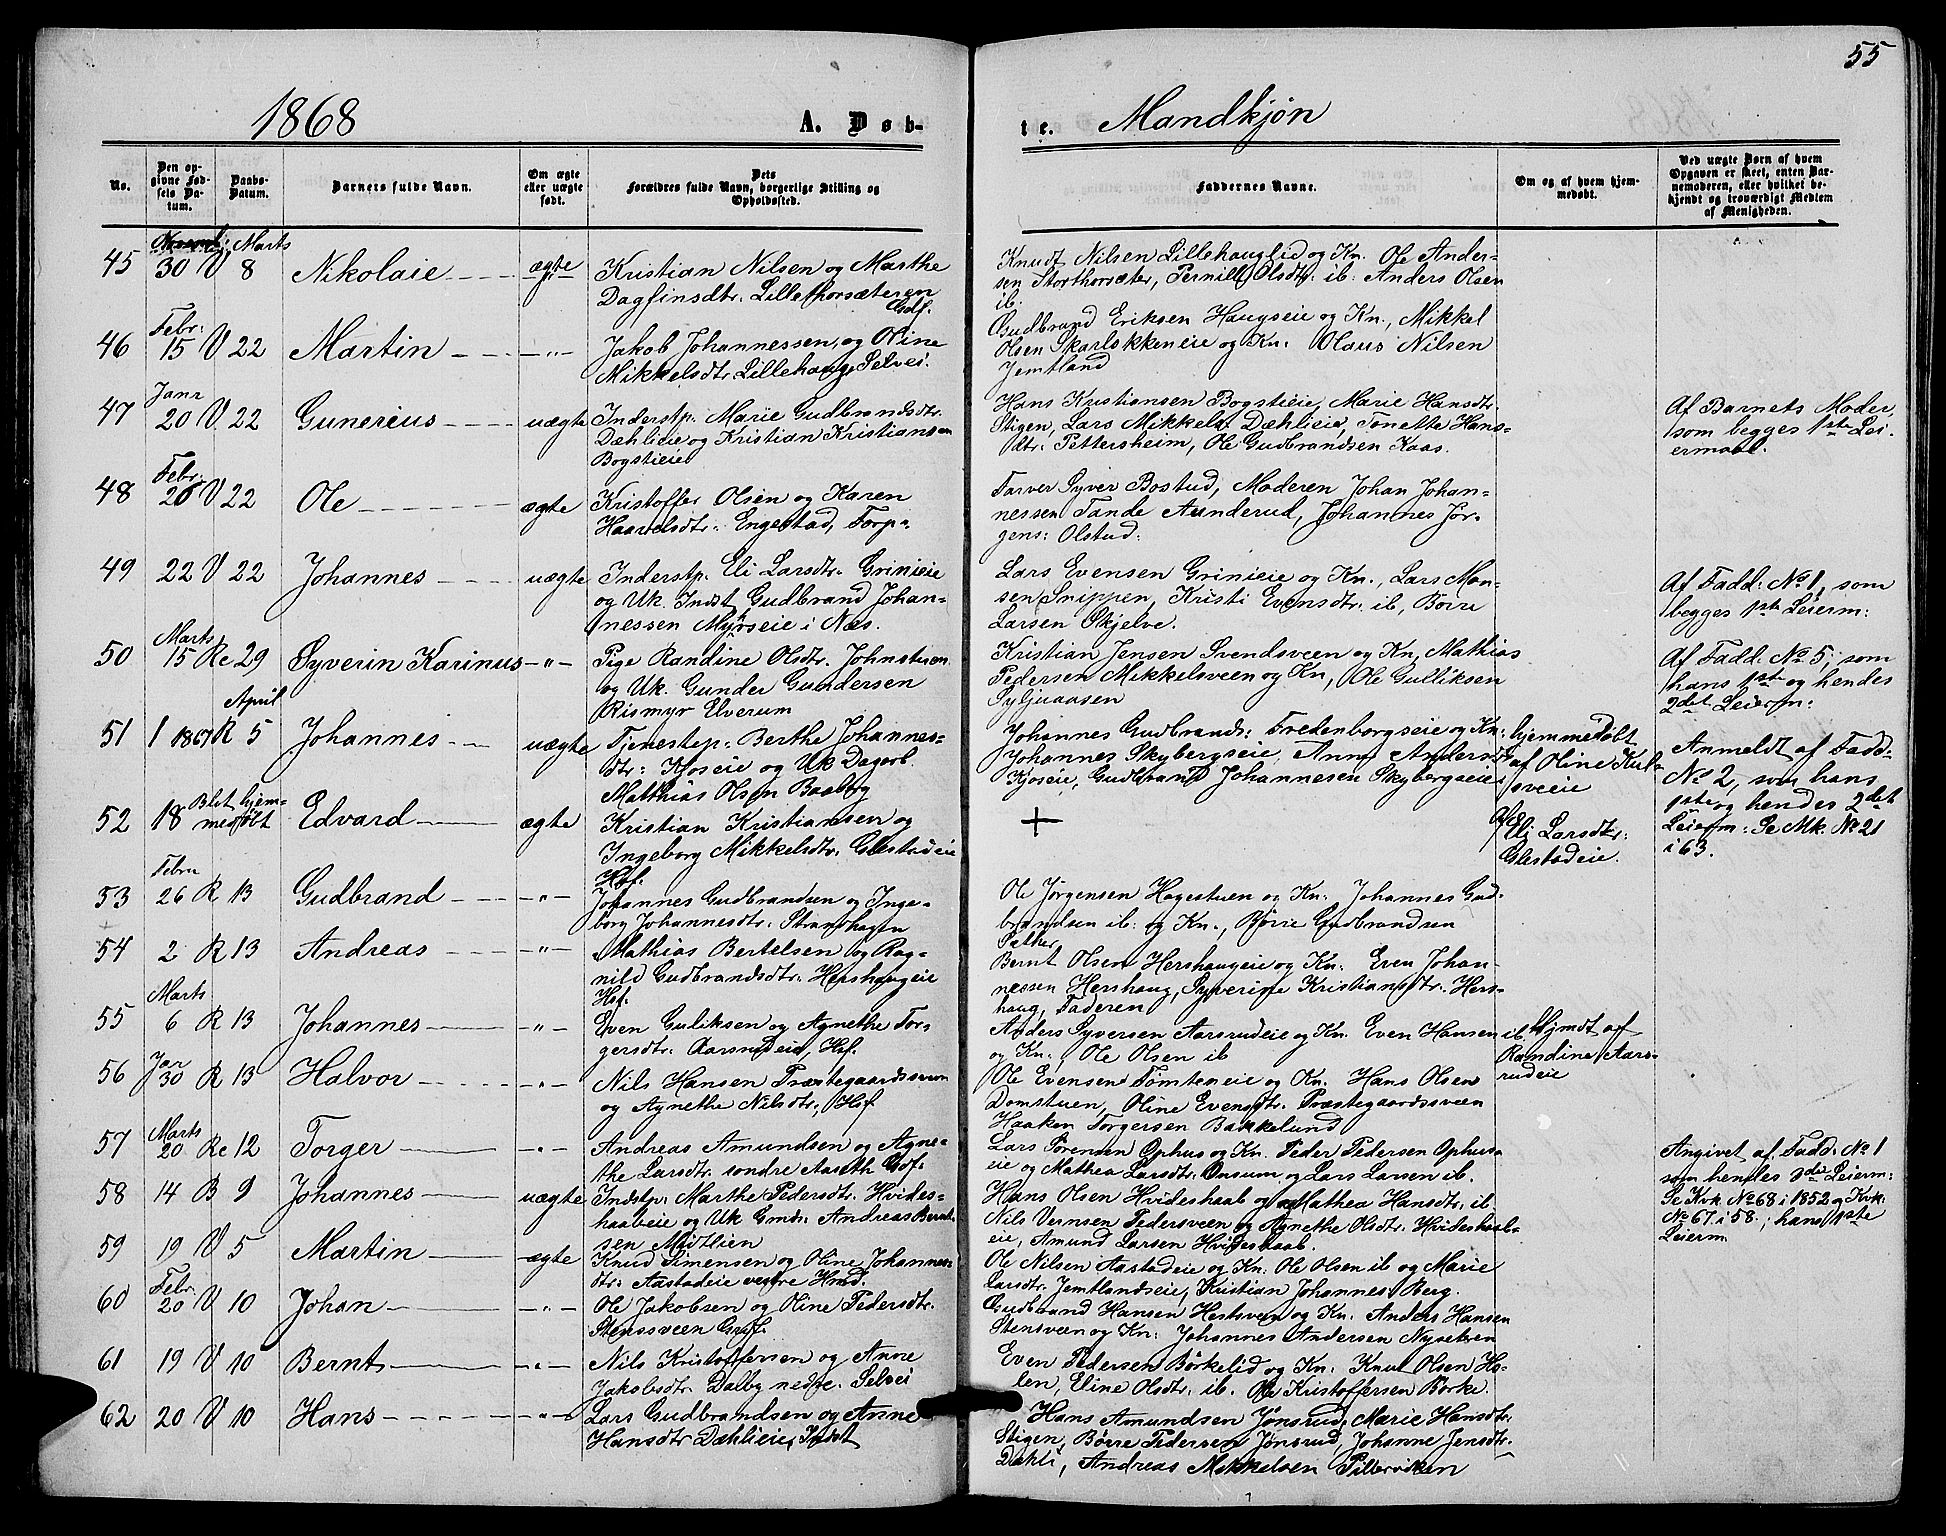 55
1868
A. Døb-
te. Mandkjøn
No.
Den op-
givne Fød-
sels Da-
tum.
Daabs-
Datum.
Barnets fulde Navn.
Om ægte
eller uægte
født.
Dets
Forældres fulde Navn, borgerlige Stilling og
Opholdssted.
Faddernes Navne.
Om og af hvem hjem-
medøbt.
Ved uægte Børn af hvem
Opgaven er skeet, enten Bar-
nemoderen, eller hvilket be-
kjendt og troværdigt Medlem
af Menigheden.
Marts
45 30 V 8 Nikolaie ægte Kristian Nilsen og Marthe
Dagfinsdtr. Lillethorsæteren
Knudt Nilsen Lillehauglid og Kn. Ole Ander-
sen Storthorsæter, Pernille Olsdtr. ib. Anders Olsen
ib.
Febr.
46 15 V 22 Martin -"- Jakob Johannessen og Oline
Mikkelsdtr. Lillehaug Selvei.
Gudbrand Eriksen Haugseie og Kn., Mikkel
Olsen Skarlokkeneie og Kn. Olaus Nilsen
Jemtland
Janr
47 20 V 22 Gunerius uægte Inderstp. Marie Gudbrandsdtr.
Dæhlieie og Kristian Kristiansen
Bogstieie
Hans Kristiansen Bogstieie, Marie Hansdtr.
Stigen, Lars Mikkels. Dæhlieie, Tonette Hans-
dtr. Pettersheim, Ole Gudbrandsen Kaas.
Af Barnets Moder,
som begges 1ste Lei-
ermaal.
Febr.
48 26 V 22 Ole ægte Kristoffer Olsen og Karen
Haavelsdtr. Engestad, Torp.
Farver Syver Bostud, Moderen Johan Johan-
nessen Tande Aunderud, Johannes Jør-
gens: Olstud.
49 22 V 22 Johannes uægte Inderstp. Eli Larsdtr. Grinieie
og Uk. Indst. Gudbrand Johan-
nessen Myrseie i Næs.
Lars Evensen Grinieie og Kn., Lars Mon-
sen Snippen, Kristi Evensdtr. ib, Børre
Larsen Skjelve.
Af Fadd: No 1, som
begges 1ste Leierm:
Marts
50 15 Re 29 Syverin Karinus -"- Pige Randine Olsdtr. Johnstuen
og Uk. Gunder Gundersen
Rismyr Elverum
Kristian Jensen Svendsveen og Kn, Mathias
Pedersen Mikkelsveen og Kn, Ole Gulliksen
Syljuaasen
Af Fadd: No 5, som
hans 1ste og hendes
2det Leierm:
April
51 1 1867 R 5 Johannes uægte Tjenestep: Berthe Johannes-
dtr: Kjoseie og Uk Dagarb.
Matthias Olsen Baaberg
Johannes Gudbrands: Fredenborgseie og Kn:
Johannes Skybergseie, Anne Andersdtr
Kjoseie, Gudbrand Johannesen Skybergseie
hjemmedøbt
af Oline Kul-
sveeie
Anmeldt af Fadd-
No 2, som hans
1ste og hendes 2det
Leierm: Se Mk. No 21
i 63.
52 18 Blot hjem-
medøbt Edvard ægte Kristian Kristiansen og
Ingeborg Mikkelsdtr. Glestadeie
+
af Eli Larsdtr:
Glestadeie.
Febru
53 26 R 13 Gudbrand -"- Johannes Gudbrandsen og Inge-
borg Johannesdtr. Strandhagen
Ole Jørgensen Hagestuen og Kn. Johannes Gud-
brandsen ib. og Kn., Børre Gudbrandsen
Sæther
54 2 R 13 Andreas -"- Mathias Bertelsen og Rag-
nild Gudbrandsdtr. Hershaugeie
Hof.
Bernt Olsen Hershaugeie og Kn. Even Johan-
nessen Hershaug, Syverine Kristiansdtr. Hers-
haug, Faderen
Marts
55 6 R 13 Johannes -"- Even Guliksen og Agnethe Tor-
gersdtr. Aarsrudeie, Hof.
Anders Syversen Aarsrudeie og Kn. Even Hansen ib.
og Kn., Ole Olsen ib
Hjmdt af
Randine Aars-
rudeie
Jar
56 30 R 13 Halvor -"- Nils Hansen Præstegaardssveen
og Agnethe Nilsdtr. Hof
Ole Evensen Tømteneie og Kn. Hans Olsen
Domstuen, Oline Evensdtr. Præstegaardssveen
Haaken Torgersen Bakkelund
Marts
57 20 Re 12 Torger -"- Andreas Amundsen og Agne-
the Larsdtr. søndre Aaseth Hof.
Lars Sørensen Ophus og Kn. Peder Pedersen Ophus-
eie og Mathea Larsdtr. Onsum og Lars Larsen ib.
58 14 B 9 Johannes uægte Indstp. Marthe Pedersdtr. Hvides-
haabeie og Uk Gmd: Andreas Bernt-
sen Midtlien
Hans Olsen Hvideshaab og Mathea Hansdtr. ib
Nils Vernsen Pedersveen og Agnethe Olsdtr. Hvideshaab-
eie, Amund Larsen Hvideshaab.
Angivet af Fadd: No 1
som hendes 3die Leierm:
Se Kvk No 68 i 1852 og Kvk:
No 67 i 58.; hans 1ste
Leierm
59 19 V 5 Martin ægte Knud Simensen og Oline Johannes-
dtr: Aastadeie vestre Hmd.
Ole Nilsen Aastadeie og Kn. Ole Olsen ib og Marie
Larsdtr. Jemtlandseie, Kristian Johannes. Berg.
Febr.
60 20 V 10 Johan -"- Ole Jakobsen og Oline Pedersdtr.
Stensveen
Gudbrand Hansen Hestsveen og Kn. Anders Hansen
Stensveen og Kn: Johannes Andersen Nysetven
61 19 V 10 Bernt -"- Nils Kristoffersen og Anne
Jakobsdtr. Dalby nedre. Selvei
Even Pedersen Børkelid og Kn: Knut Olsen Ho-
len, Eline Olsdtr. ib. Ole Kristoffersen Borke.
62 20 V 10 Hans -"- Lars Gudbrandsen og Anne
Hansdtr Dæhlieie, Indst
Hans Amundsen Jønsrud, Marie Hansdtr.
Stigen, Børre Pedersen Jønsrud, Johanne Jensdtr.
Dæhli, Andreas Mikkelsen Pillerviken